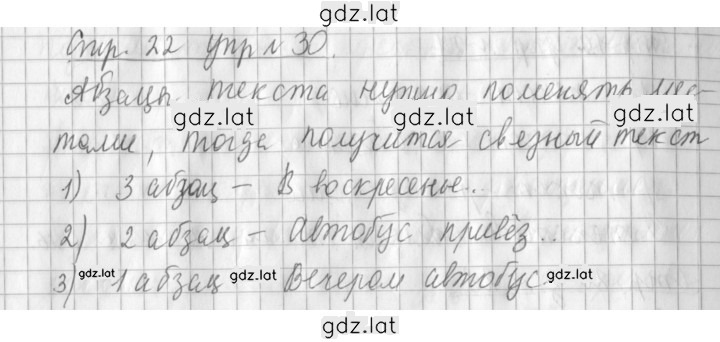 gdz.lat
Стр. 22 упр № 30.
gdz.lat
Абзацы текста нужно поменять мес-
gdz.lat gdz.lat gdz.lat
тами, тогда получится связный текст
1) 3 абзац – В воскресенье..
2) 2 абзац – Автобус привёз..
3) gdz.lat 1 абзац gdz.lat Вечером автобус gdz.lat
gdz.lat